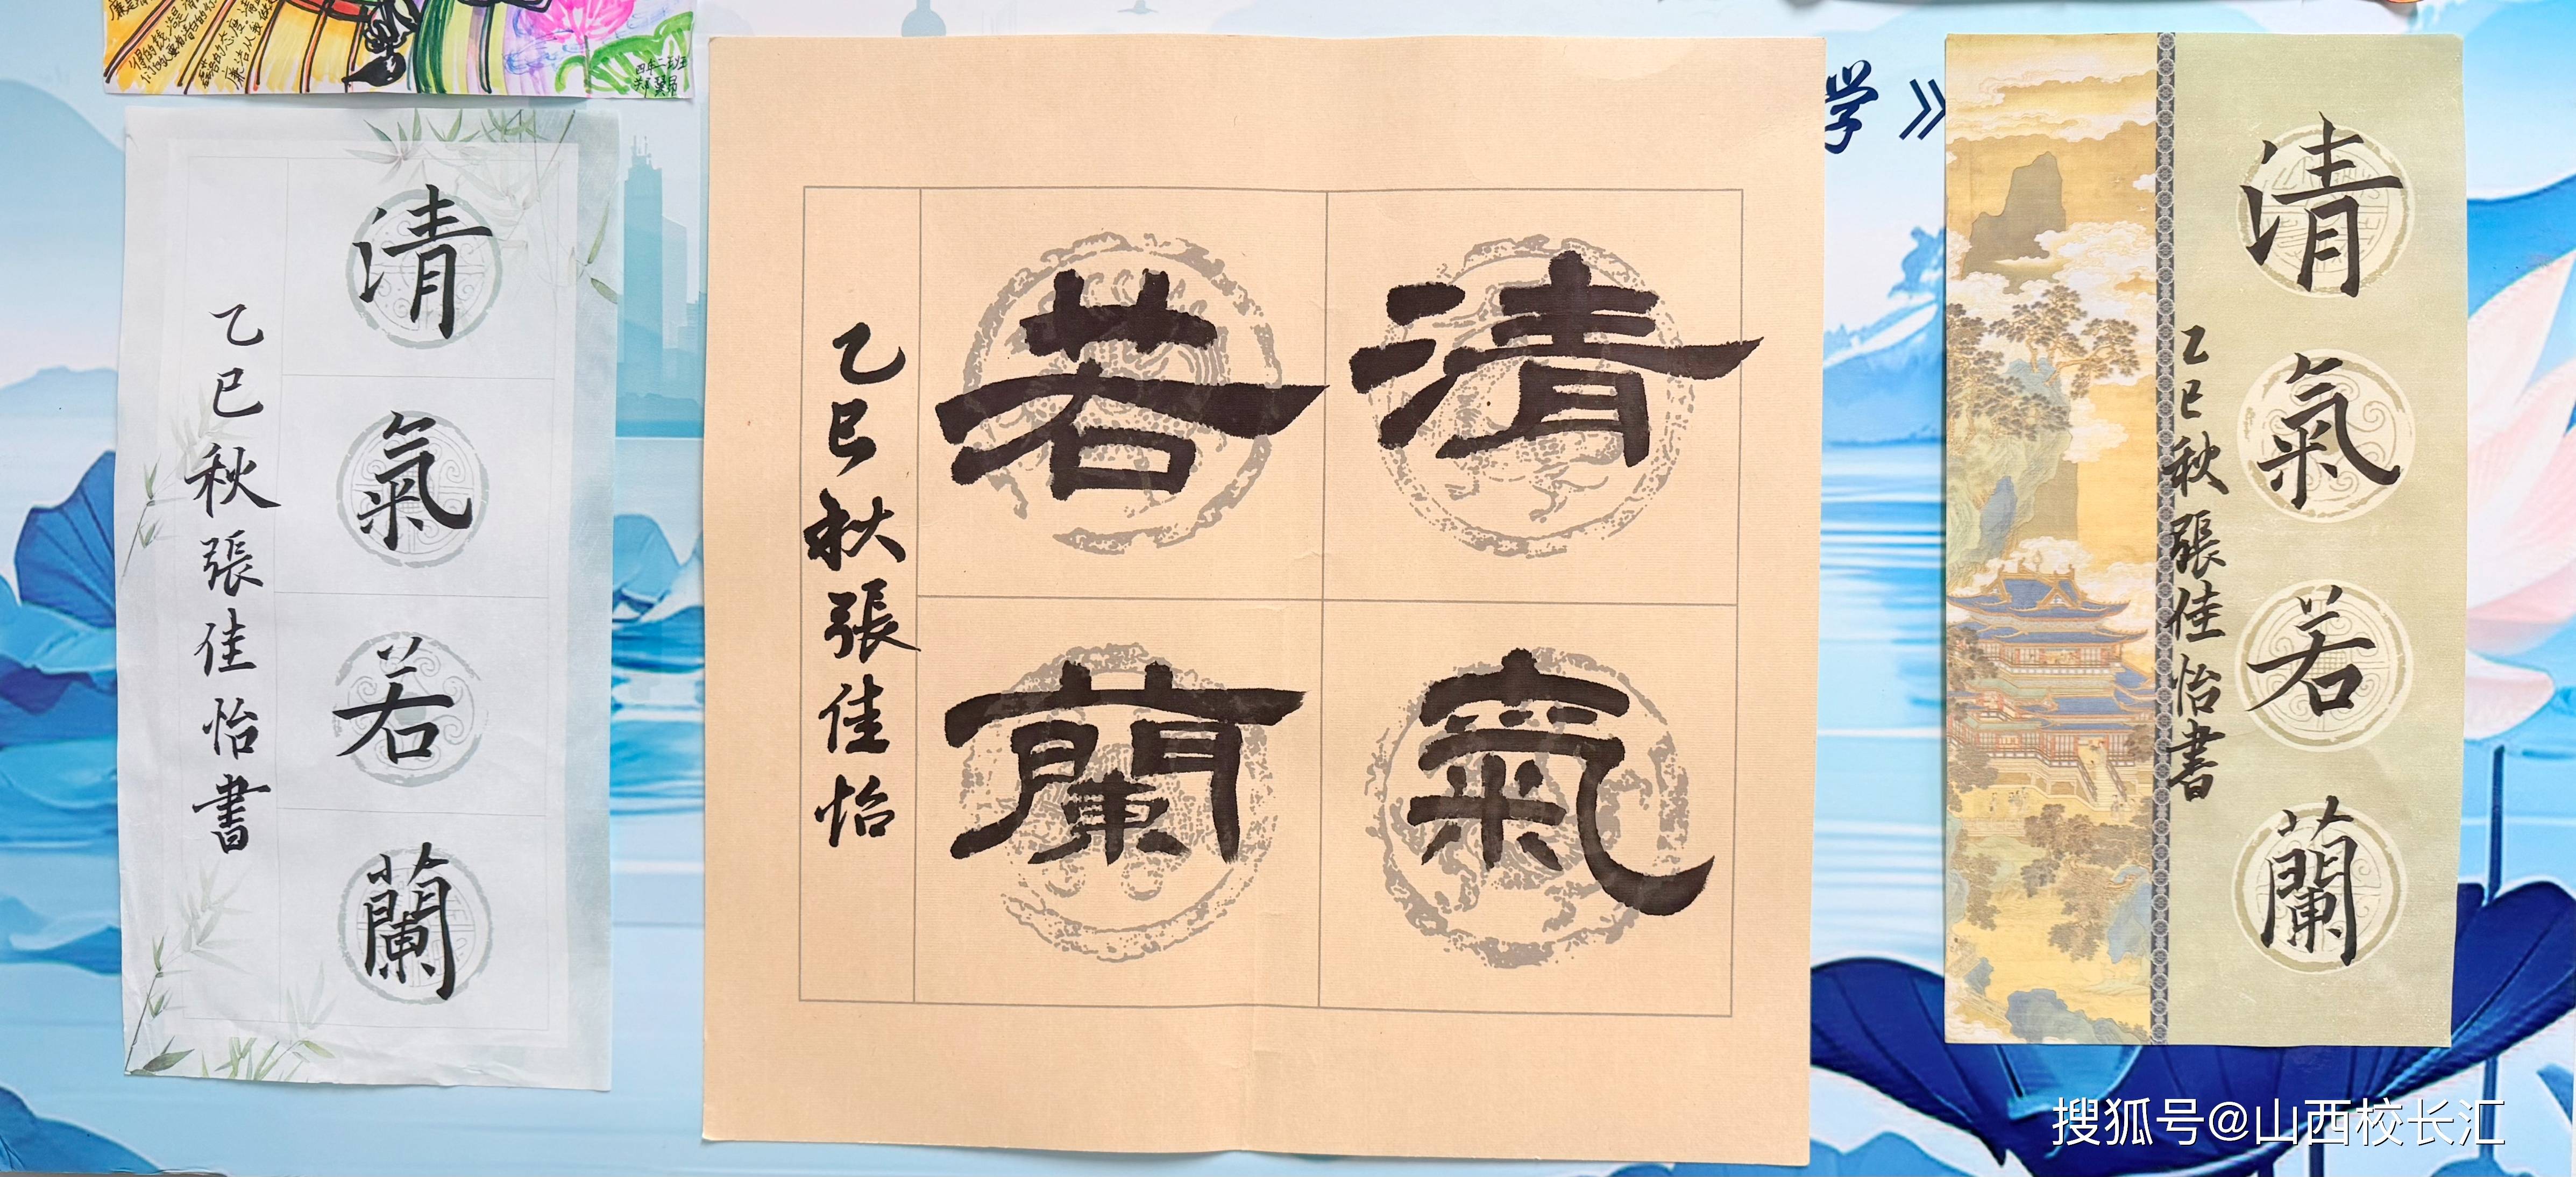 四年二班
清氣若蘭
乙巳秋張佳怡書
清氣
若蘭
乙巳秋張佳怡
学》
清氣若蘭
乙巳秋張佳怡書
搜狐号@山西校长汇